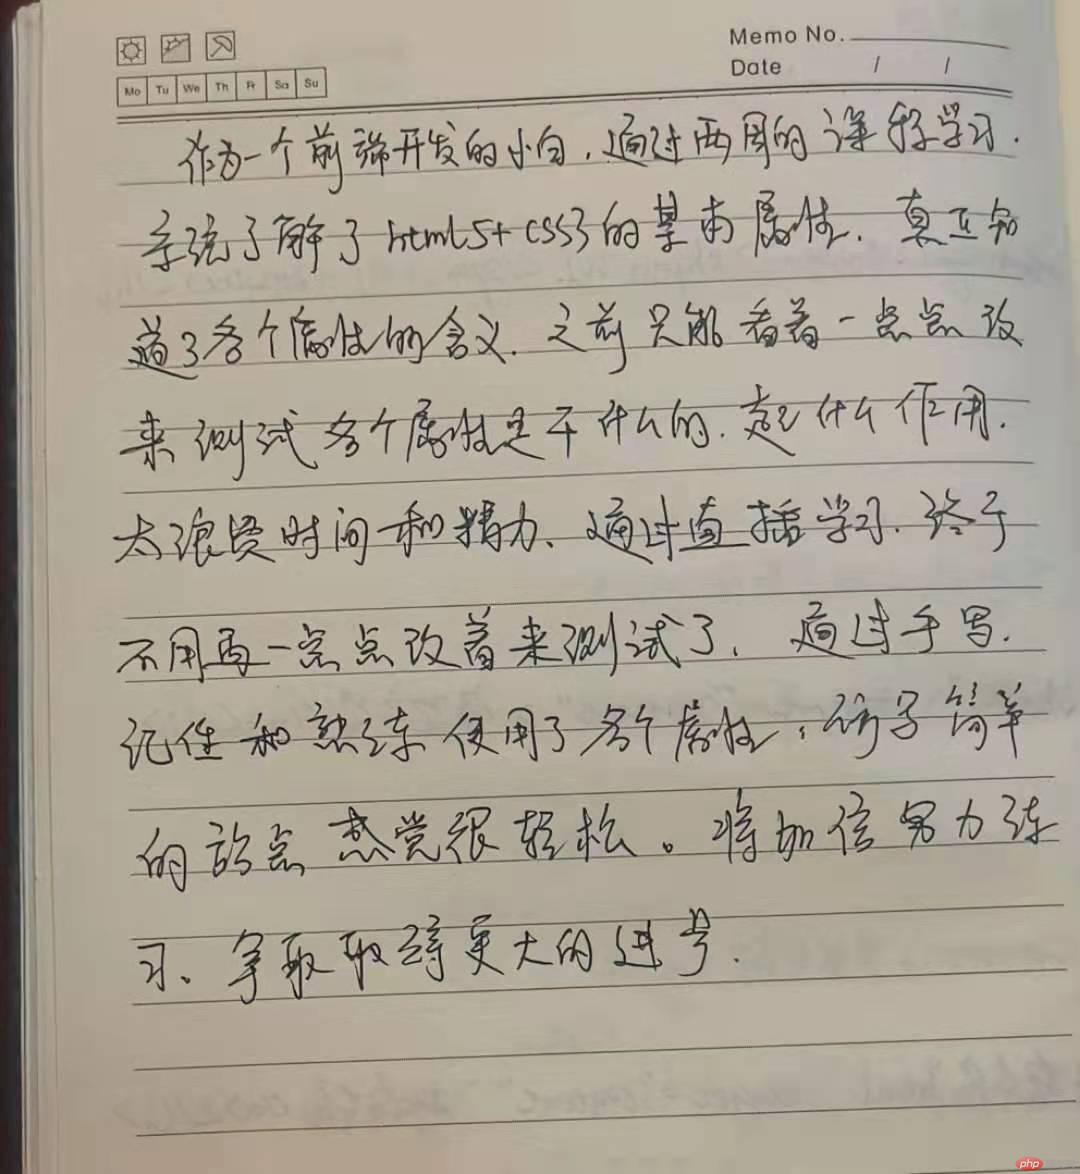 Memo No.
Date / /
Mo Tu We Th Fr Sa Su
作为一个前端开发的小白,通过两周的课程学习.
系统了解了html5+css3的基本属性.真正知
道了各个属性的含义.之前只能看着一点点改
来测试各个属性是干什么的.起什么作用.
太浪费时间和精力、通过直播学习.终于
不用再一点点改着来测试了.通过手写.
记住和熟练使用了各个属性,仿写简单
的站点感觉很轻松。将加倍努力练
习、争取取得更大的进步.
php